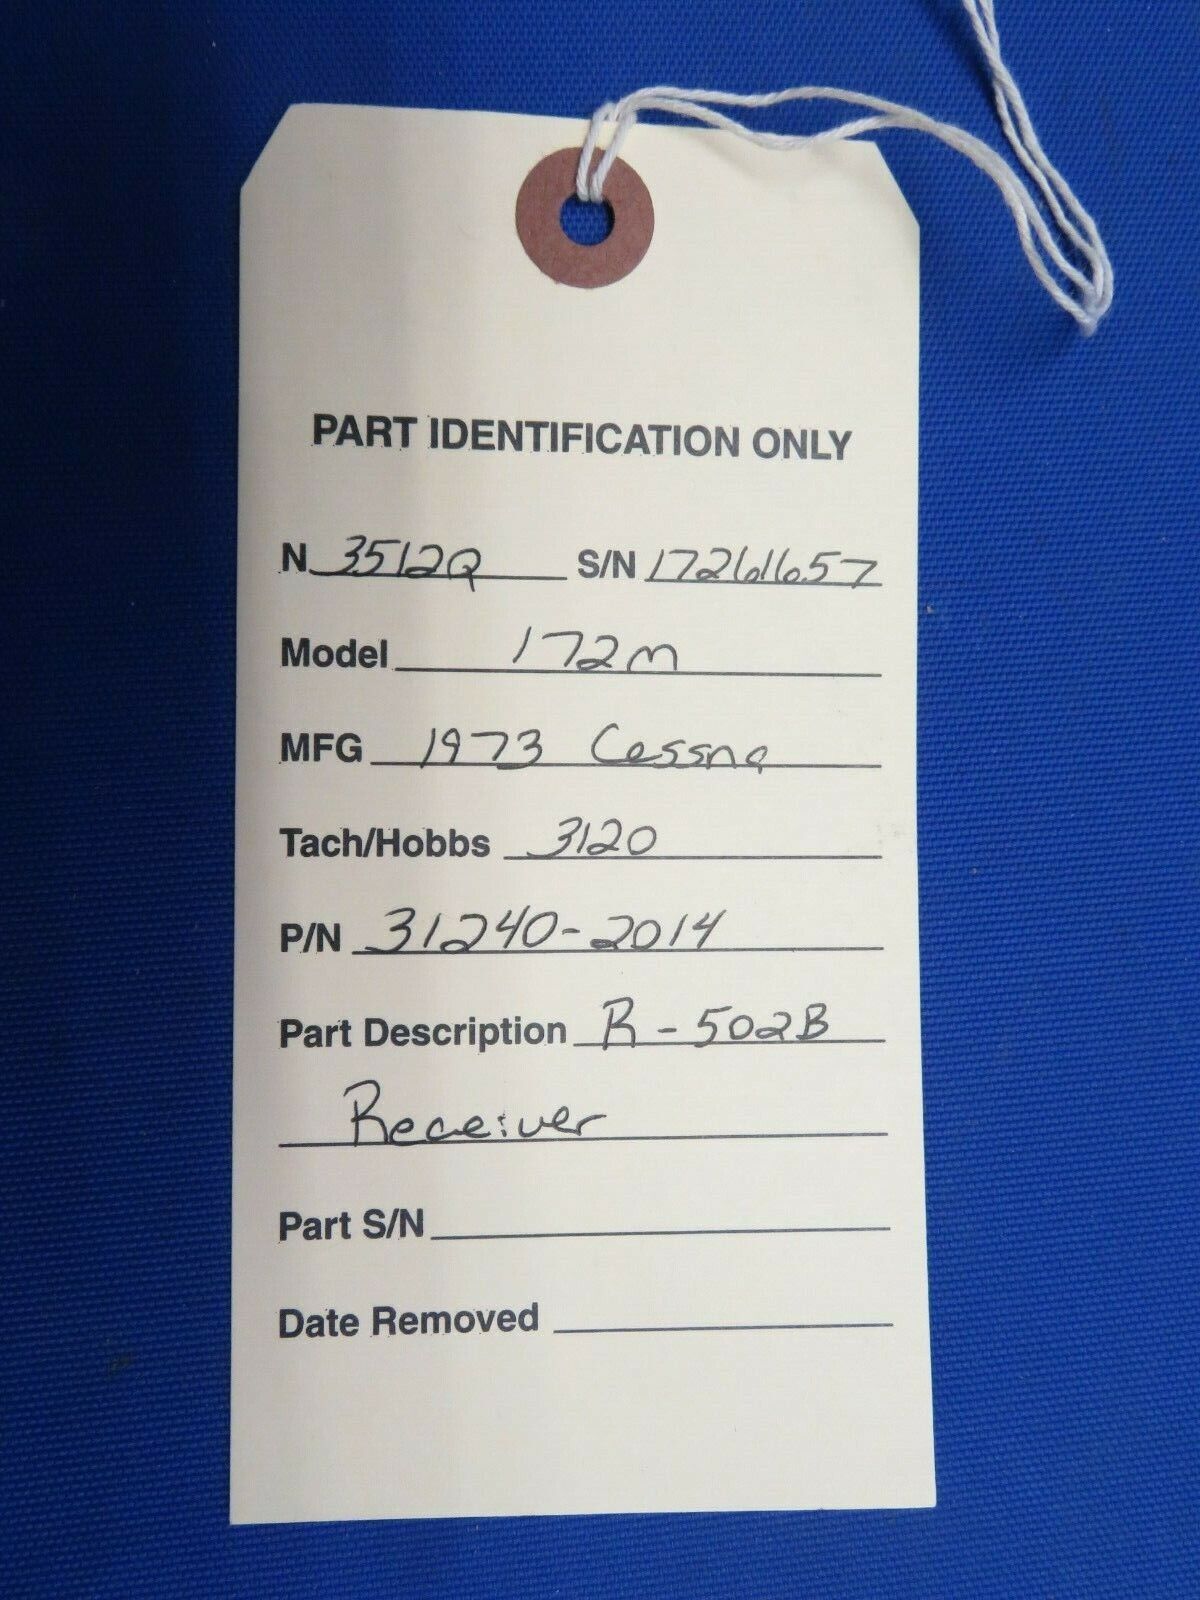 PART IDENTIFICATION ONLY
N 3512Q S/N 17261657
Model 172m
MFG 1973 Cessna
Tach/Hobbs 3120
P/N 31240-2014
Part Description R-502B
Receiver
Part S/N
Date Removed